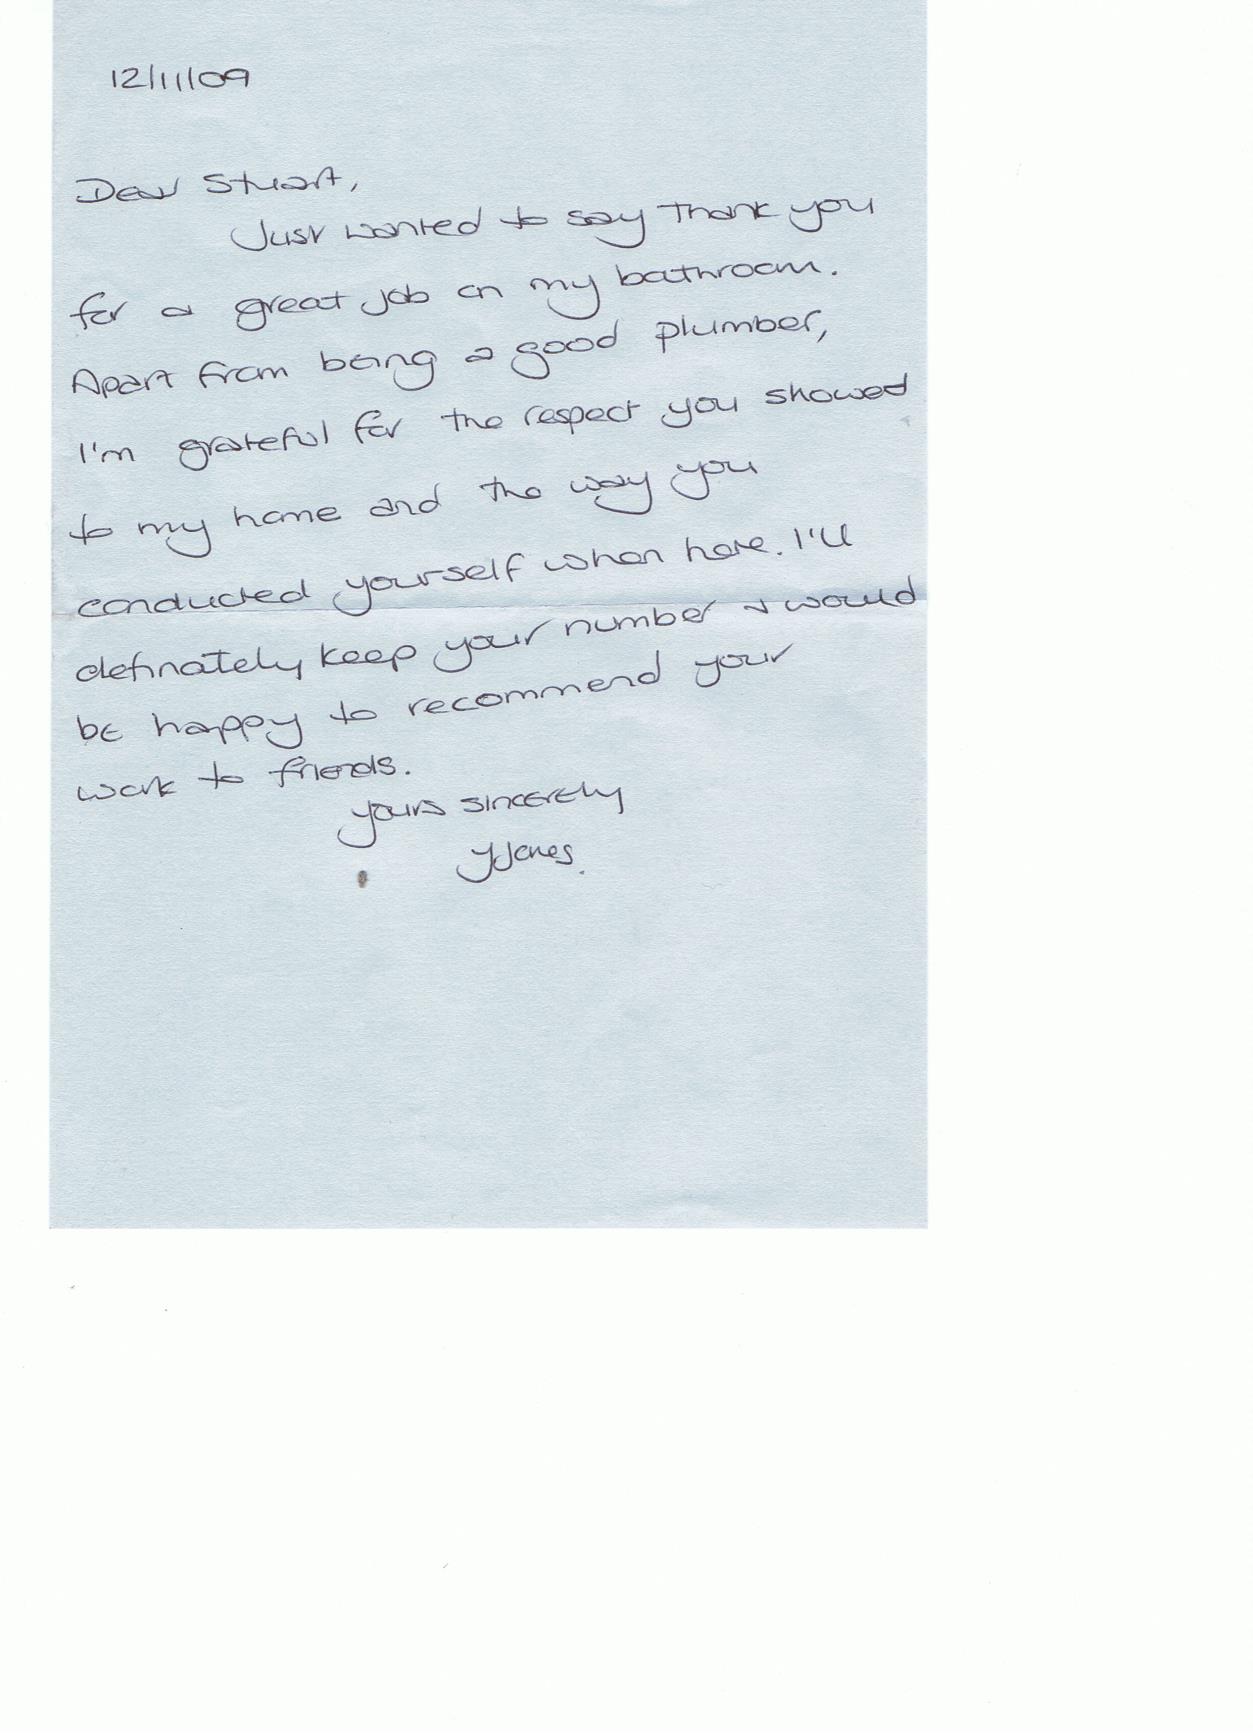 12/11/09
Dear Stuart,
Just wanted to say Thank you
for a great job on my bathroom.
Apart from being a good plumber,
I'm grateful for the respect you showed
to my home and the way you
conducted yourself when here. I'll
definately keep your number & would
be happy to recommend your
work to friends.
yours sincerely
YJones.